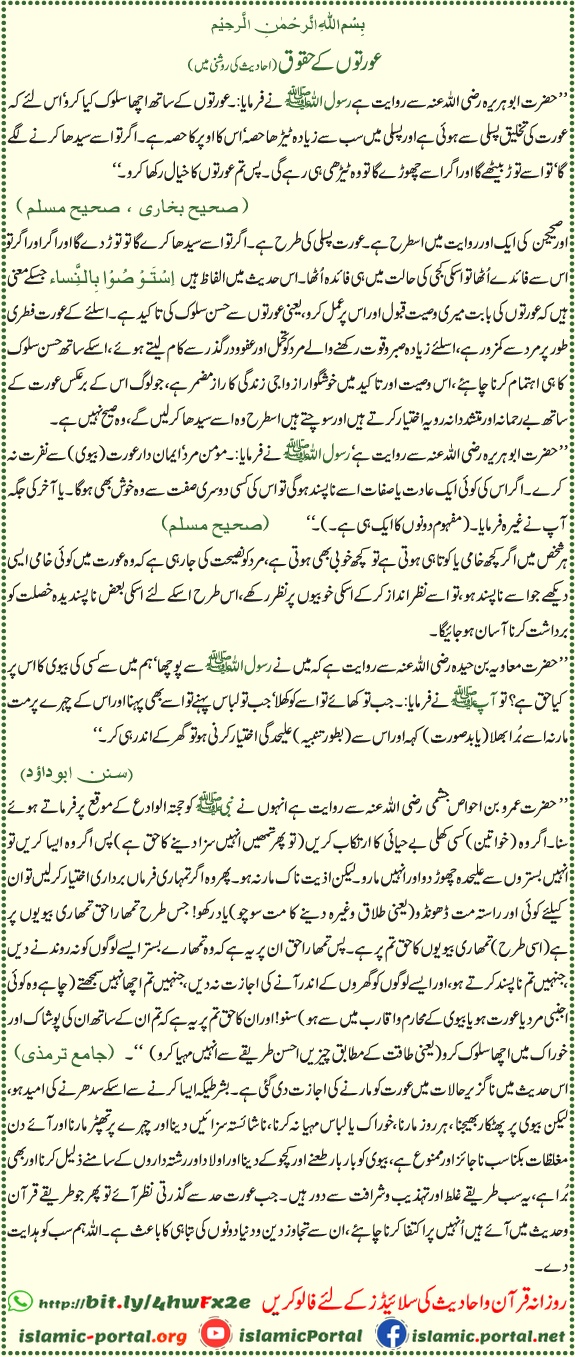 بِسْمِ اللهِ الرَّحْمٰنِ الرَّحِيْمِ
عورتوں کے حقوق (احادیث کی روشنی میں)
’’حضرت ابوہریرہ رضی اللہ عنہ سے روایت ہے رسول اللہ ﷺ نے فرمایا:۔ عورتوں کے ساتھ اچھا سلوک کیا کرو‘ اس لئے کہ
عورت کی تخلیق پسلی سے ہوئی ہے اور پسلی میں سب سے زیادہ ٹیڑھا حصہ‘ اس کا اوپر کا حصہ ہے۔ اگر تو اسے سیدھا کرنے لگے
گا‘ تو اسے توڑ بیٹھے گا اور اگر اسے چھوڑے گا تو وہ ٹیڑھی ہی رہے گی۔ پس تم عورتوں کا خیال رکھا کرو۔‘‘
(صحیح بخاری ، صحیح مسلم)
اور صحیحین کی ایک اور روایت میں اسطرح ہے۔ عورت پسلی کی طرح ہے۔ اگر تو اسے سیدھا کرے گا تو توڑ دے گا اور اگر اور اگر تو
اس سے فائدے اُٹھا تو اسکی کجی کی حالت میں ہی فائدہ اُٹھا۔ اس حدیث میں الفاظ ہیں اِسْتَوْصُوْا بِالنِّساء جسکے معنی
ہیں کہ عورتوں کی بابت میری وصیت قبول اور اس پر عمل کرو، یعنی عورتوں سے حسن سلوک کی تاکید ہے۔ اسلئے کے عورت فطری
طور پر مرد سے کمزور ہے، اسلئے زیادہ صبر و قوت رکھنے والے مرد کو تحمل اور عفو و درگذر سے کام لیتے ہوئے، اسکے ساتھ حسن سلوک
کا ہی اہتمام کرنا چاہئے، اس وصیت اور تاکید میں خوشگوار ازواجی زندگی کا راز مضمر ہے، جو لوگ اس کے برعکس عورت کے
ساتھ بے رحمانہ اور متشددانہ رویہ اختیار کرتے ہیں اور سوچتے ہیں اسطرح وہ اسے سیدھا کرلیں گے، وہ صحیح نہیں ہے۔
’’حضرت ابوہریرہ رضی اللہ عنہ سے روایت ہے‘ رسول اللہ ﷺ نے فرمایا:۔ مؤمن مرد‘ ایمان دار عورت (بیوی) سے نفرت نہ
کرے۔ اگر اس کی کوئی ایک عادت یا صفات اسے ناپسند ہوگی تو اس کی کسی دوسری صفت سے وہ خوش بھی ہوگا۔ یا آخر کی جگہ
آپ نے غیرہ فرمایا۔ (مفہوم دونوں کا ایک ہی ہے۔)۔‘‘ (صحیح مسلم)
ہر شخص میں اگر کچھ خامی یا کوتاہی ہوتی ہے تو کچھ خوبی بھی ہوتی ہے، مرد کو نصیحت کی جارہی ہے کہ وہ عورت میں کوئی خامی ایسی
دیکھے جو اسے ناپسند ہو، تو اسے نظر انداز کرکے اسکی خوبیوں پر نظر رکھے، اس طرح اسکے لئے اسکی بعض ناپسندیدہ خصلت کو
برداشت کرنا آسان ہو جائیگا۔
’’حضرت معاویہ بن حیدہ رضی اللہ عنہ سے روایت ہے کہ میں نے رسول اللہ ﷺ سے پوچھا‘ ہم میں سے کسی کی بیوی کا اس پر
کیا حق ہے؟ تو آپ ﷺ نے فرمایا:۔ جب تو کھائے تو اسے کھلا‘ جب تو لباس پہنے تو اسے بھی پہنا اور اس کے چہرے پر مت
مار نہ اسے بُرا بھلا (یا بدصورت) کہہ اور اس سے (بطور تنبیہ) علیحدگی اختیار کرنی ہو تو گھر کے اندر ہی کر۔‘‘
(سنن ابوداؤد)
’’حضرت عمرو بن احواص جشمی رضی اللہ عنہ سے روایت ہے انہوں نے نبی ﷺ کو حجتہ الوادع کے موقع پر فرماتے ہوئے
سنا۔ اگر وہ (خواتین) کسی کھلی بے حیائی کا ارتکاب کریں (تو پھر تمھیں انہیں سزا دینے کا حق ہے) پس اگر وہ ایسا کریں تو
انہیں بستروں سے علیحدہ چھوڑ دو اور انہیں مارو۔ لیکن اذیت ناک مار نہ ہو۔ پھر وہ اگر تمہاری فرماں برداری اختیار کرلیں تو ان
کیلئے کوئی اور راستہ مت ڈھونڈو (یعنی طلاق وغیرہ دینے کا مت سوچو) یاد رکھو! جس طرح تمھارا حق تمھاری بیویوں پر
ہے (اسی طرح) تمھاری بیویوں کا حق تم پر ہے۔ پس تمھارا حق ان پر یہ ہے کہ وہ تمھارے بستر ایسے لوگوں کو نہ روندنے دیں
،جنہیں تم ناپسند کرتے ہو، اور ایسے لوگوں کو گھروں کے اندر آنے کی اجازت نہ دیں، جنہیں تم اچھا نہیں سمجھتے (چاہے وہ کوئی
اجنبی مرد یا عورت ہو یا بیوی کے محارم و اقارب میں سے ہو) سنو! اور ان کا حق تم پر یہ ہے کہ تم ان کے ساتھ ان کی پوشاک اور
خوراک میں اچھا سلوک کرو (یعنی طاقت کے مطابق چیزیں احسن طریقے سے انہیں مہیا کرو) ‘‘۔ (جامع ترمذی)
اس حدیث میں ناگزیر حالات میں عورت کو مارنے کی اجازت دی گئی ہے۔ بشرطیکہ ایسا کرنے سے اسکے سدھرنے کی امید ہو،
لیکن بیوی پر پھٹکار بھیجنا، ہر روز مارنا، خوراک یا لباس مہیا نہ کرنا، ناشائستہ سزائیں دینا اور چہرے پر تھپڑ مارنا اور آئے دن
مغلظات بکنا سب ناجائز اور ممنوع ہے، بیوی کو بار بار طعنے اور کچوکے دینا اور اولاد اور رشتہ داروں کے سامنے ذلیل کرنا اور بھی
بُرا ہے، یہ سب طریقے غلط اور تہذیب و شرافت سے دور ہیں۔ جب عورت حد سے گذرتی نظر آئے تو پھر جو طریقے قرآن
و حدیث میں آئے ہیں اُنہیں پر اکتفا کرنا چاہئے، ان سے تجاوز دین و دنیا دونوں کی تباہی کا باعث ہے۔ اللہ ہم سب کو ہدایت
دے۔
روزانہ قرآن و احادیث کی سلائیڈز کے لئے فالو کریں http://bit.ly/4hwFx2e
islamic-portal.org islamicPortal islamic.portal.net